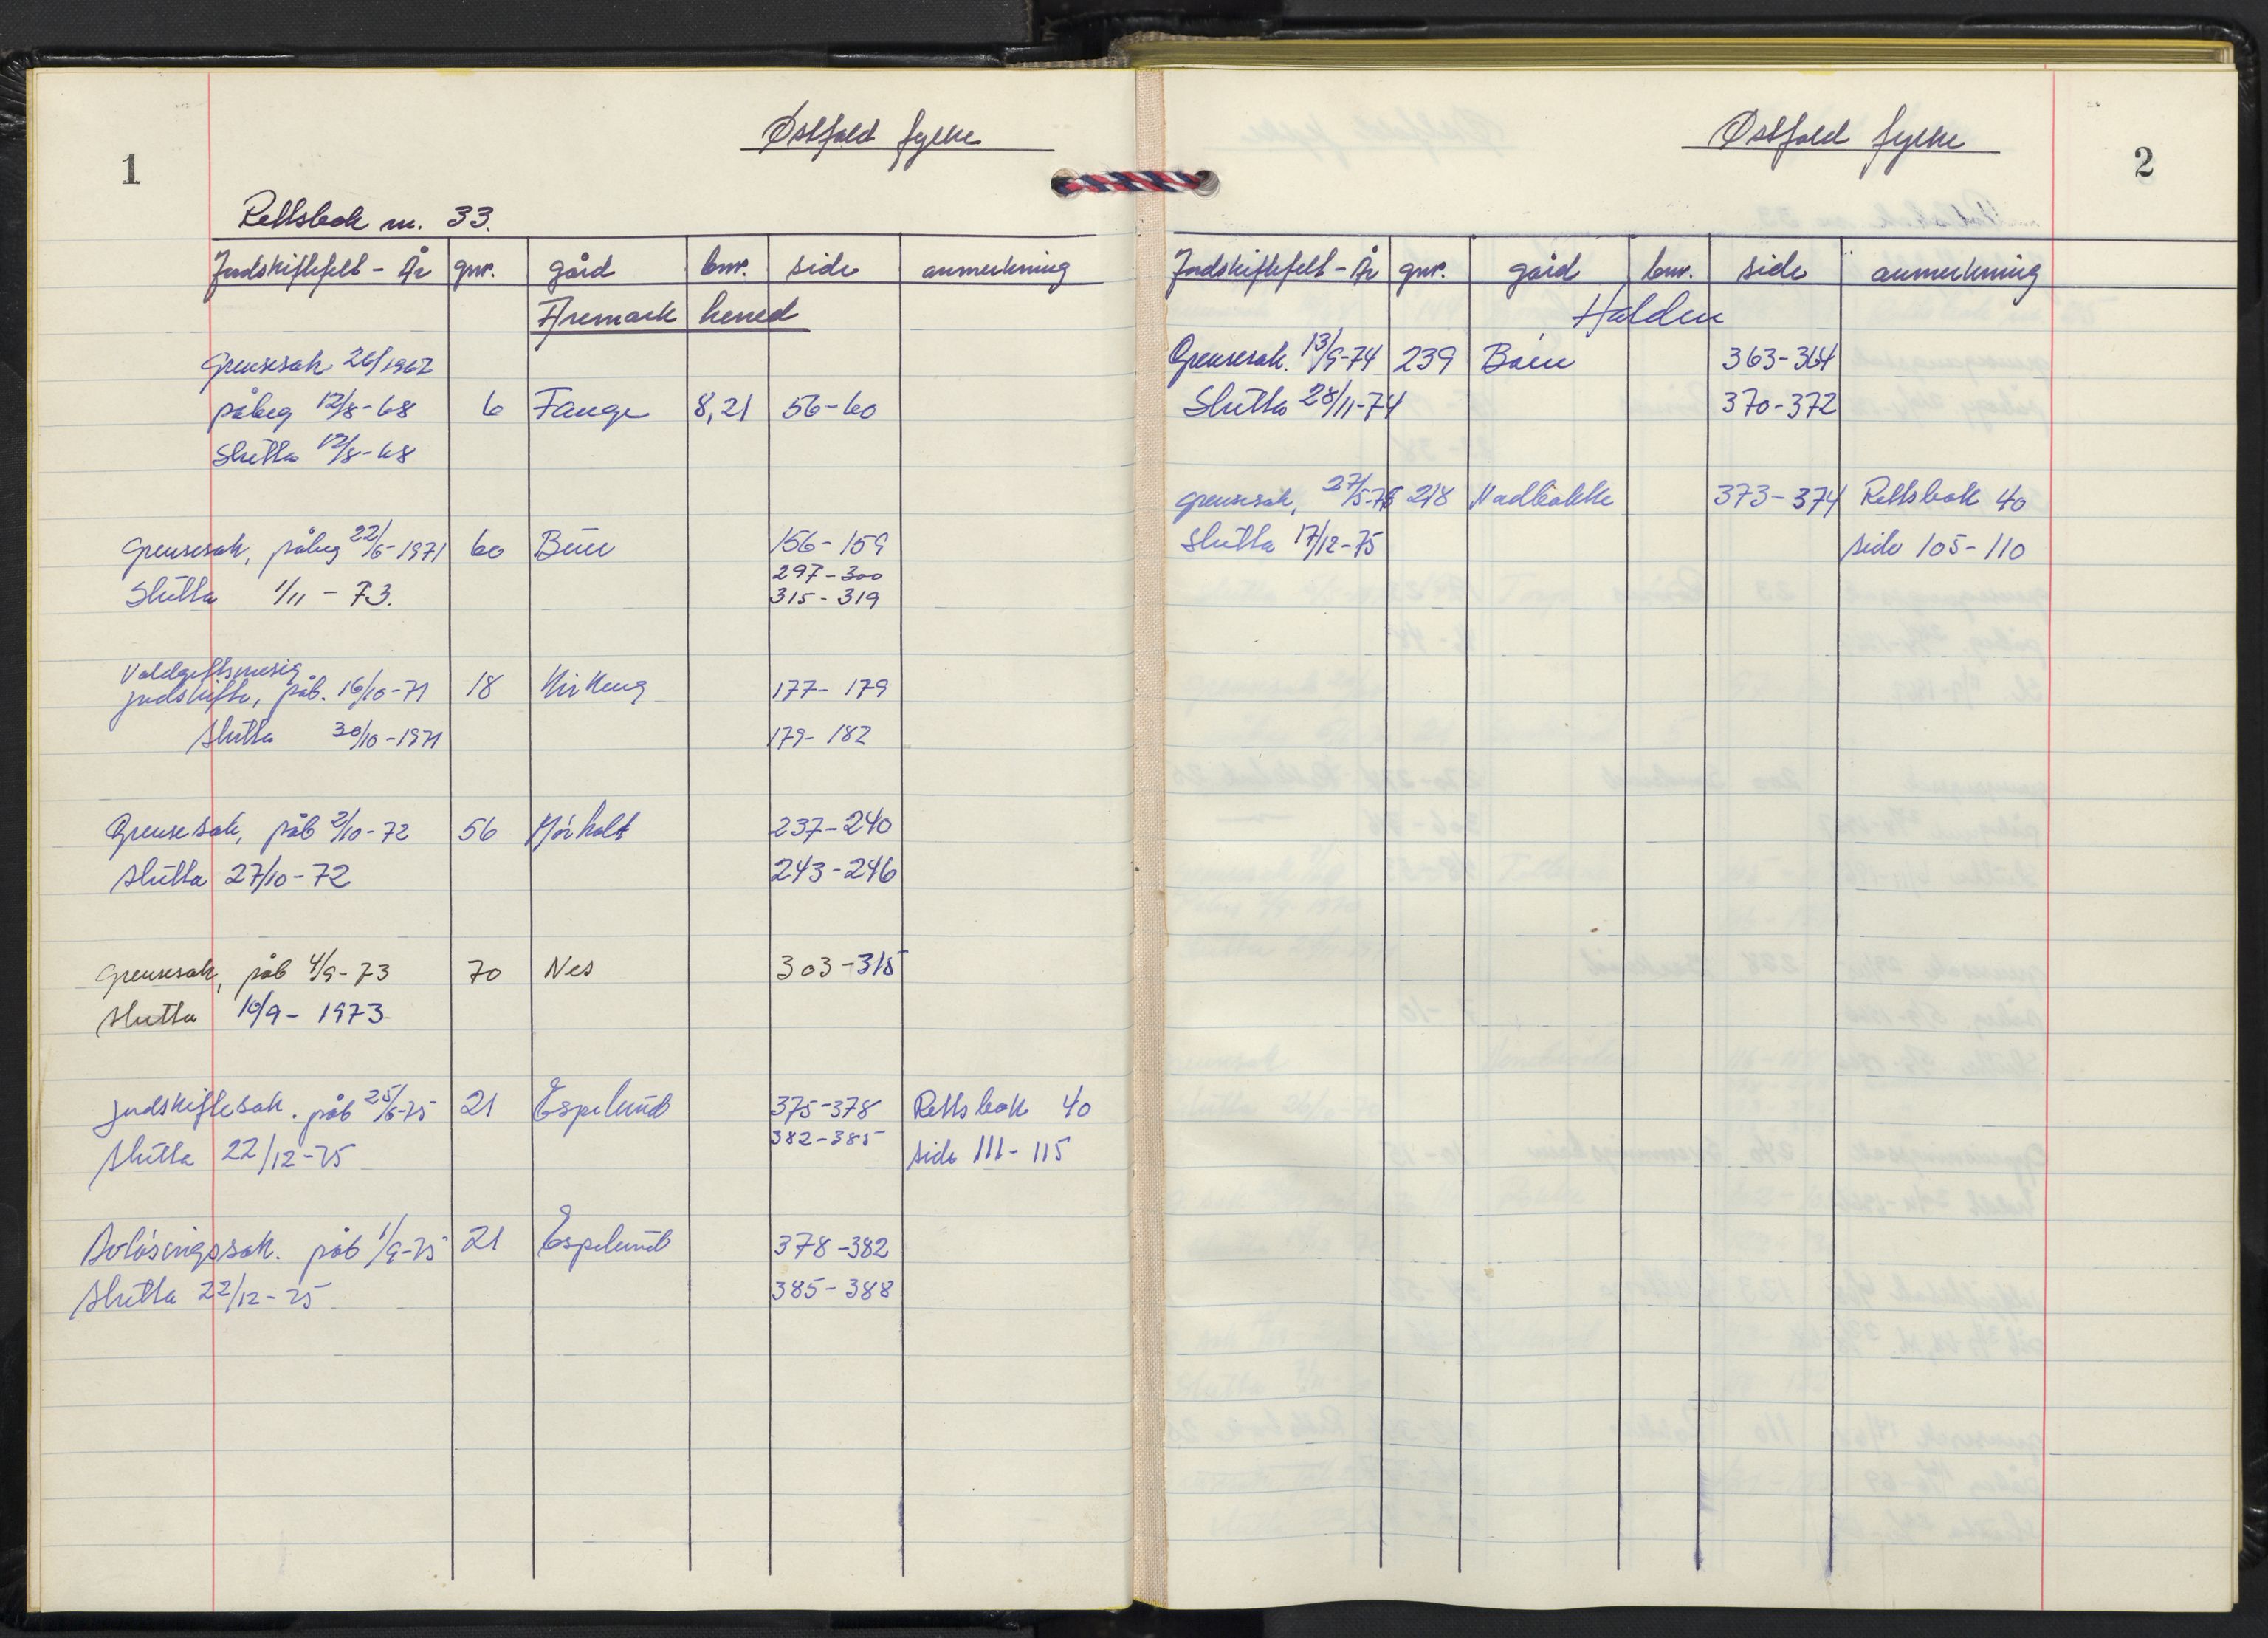 1
Østfold fylke
Rettsbok nr. 33.
Jordskiftefelt - År gnr. gård bnr. side anmerkning
Aremark herred
Grensesak 26/1967
påbeg 12/8-68 6 Fange 8,21 56-60
Slutta 12/8-68
Grensesak, påbeg 22/6-1971 60 Buer 156-159
297-300
Slutta 1/11 - 73. 315-319
Voldgiftsmessig
jordskifte, påb. 16/10-71 18 Kirkeng 177-179
slutta 30/10-1971 179-182
Grensesak, påb 2/10-72 56 Mørholt 237-240
slutta 27/10-72 243-246
Grensesak, påb 4/9-73 70 Nes 303-315
slutta 10/9-1973
Jordskiftesak. påb 25/6-75 21 Espelund 375-378 Rettsbok 40
382-385
slutta 22/12-75 side 111-115
Avløsingssak. påb 1/9-75 21 Espelund 378-382
slutta 22/12-75 385-388
Østfold fylke
2
Jordskiftefelt - År gnr. gård bnr. side anmerkning
Halden
Grensesak. 13/9-74 239 Båen 363-364
Slutta 28/11-74 370-372
grensesak, 27/5-75 218 373-374 Rettsbok 40
Slutta 17/12-75 side 105-110